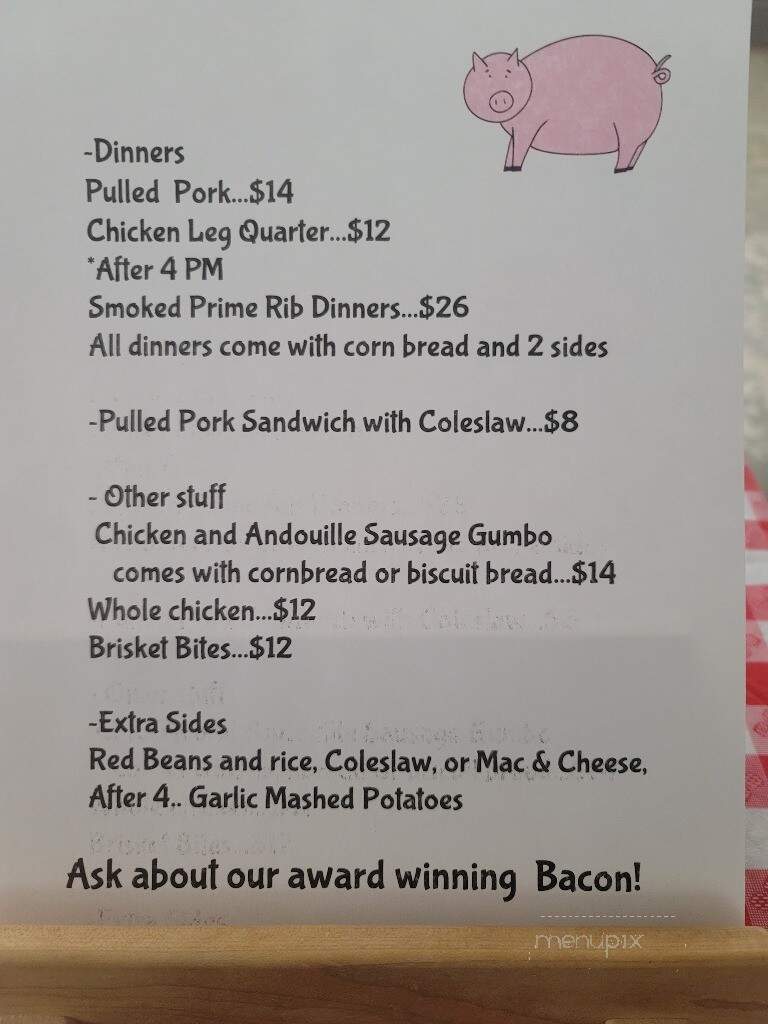 -Dinners
Pulled Pork...$14
Chicken Leg Quarter...$12
*After 4 PM
Smoked Prime Rib Dinners...$26
All dinners come with corn bread and 2 sides
-Pulled Pork Sandwich with Coleslaw...$8
- Other stuff
Chicken and Andouille Sausage Gumbo
comes with cornbread or biscuit bread...$14
Whole chicken...$12
Brisket Bites...$12
-Extra Sides
Red Beans and rice, Coleslaw, or Mac & Cheese,
After 4.. Garlic Mashed Potatoes
Ask about our award winning Bacon!
menupix